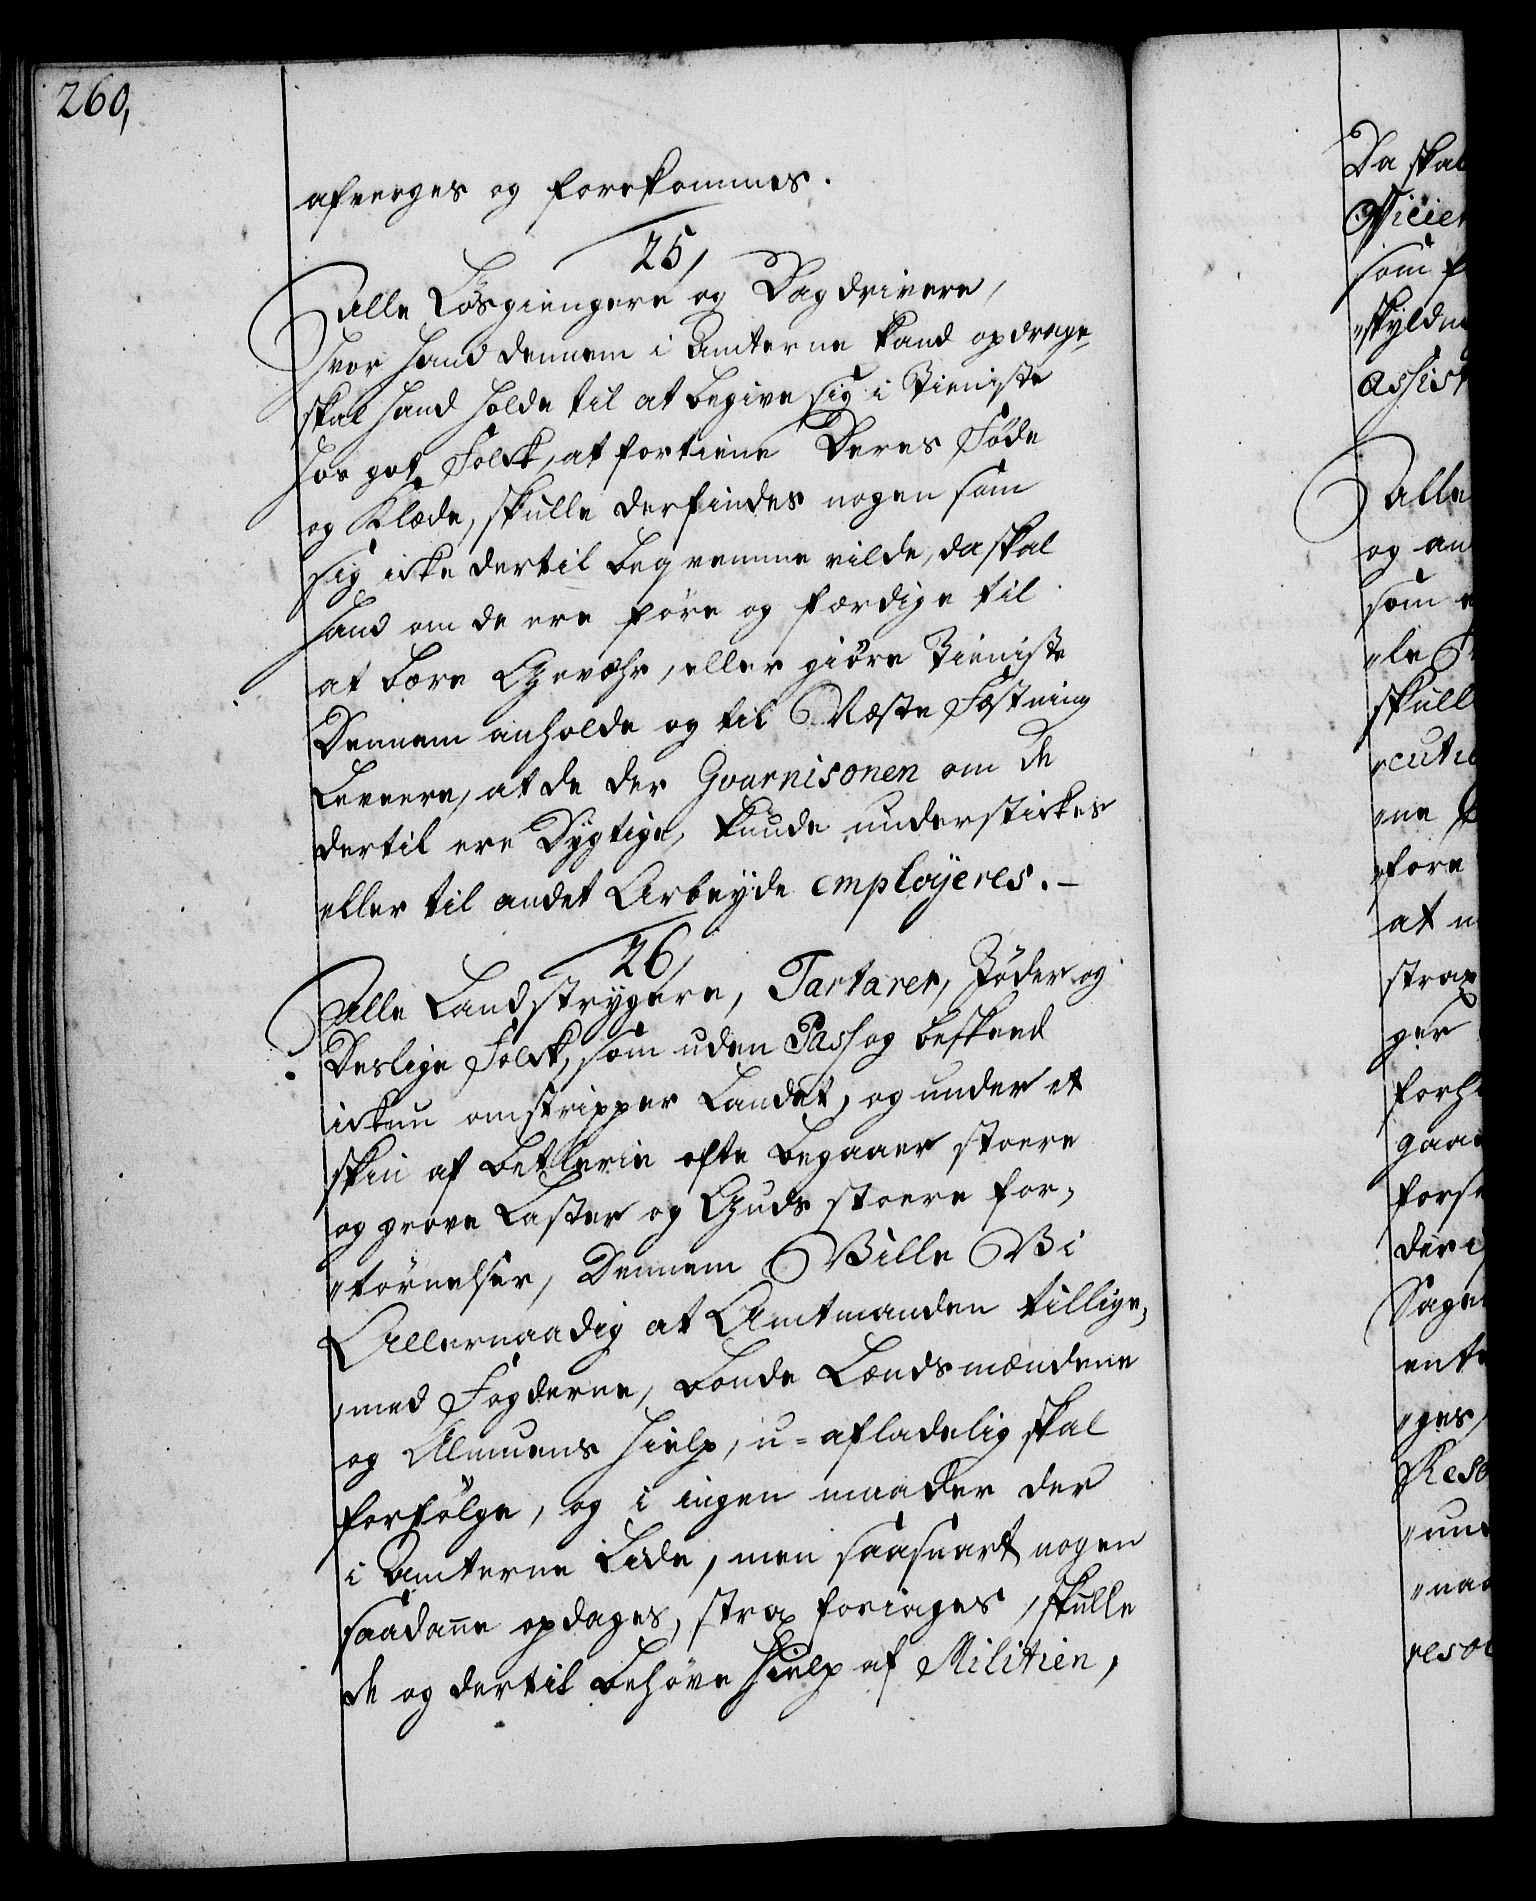 260,
afverges og forekommes.
25,
Alle Løsgiengere og Dagdrivere,
hvor hand dennem i Amterne kand opdrage,
skal hand holde til at begive sig i Tieniste
hos got Folck, at fortiene Deres Føde
og Klæde, skulle derfindes nogen som
sig icke dertil beqvemme vilde, da skal
hand om de ere føre og færdige til
at bære Gevæhr, eller giøre Tieniste
Dennem anholde og til Næste Fæstning
Levere, at de der Gvarnisonen om de
dertil ere Dygtige, kunde understickes
eller til andet Arbeyde employeres.-
26,
Alle Landstrygere, Tartarer, Jøder og
Deslige Folck, som uden Pass og beskeed
ickun omstripper Landet, og under et
skin af betlerie ofte begaaer stoere
og grove Laster og Guds stoere for-
"tørnelser, Dennem Ville Vi
Allernaadig at Amtmanden tillige,
"med Fogderne, bonde Lændsmændene
og Almuens hielp, u-afladelig skal
forfølge, og i ingen maader der
i Amterne Lide, men saasnart nogen
saadañe opdages, strax foriages, skulle
de og dertil behøve hielp af Militien,
Da skal
Officier
som f
"skyldn
Assist
Alle
og an
som
"le
skull
"cutio
"ne
"fore
at
strax
ger
forh
gaa
fors
deri
Sage
ent
"ges,
Reso
"un
"naa
resol